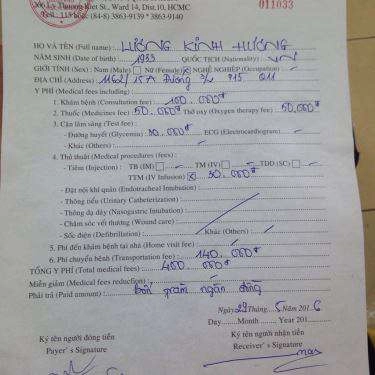 Lý Thường Kiệt St., Ward 14, Dist.10, HCMC
Tel.: 115 hoặc (84-8) 3863-9139 * 3863-9140
011033
HỌ VÀ TÊN (Full name): LƯƠNG KINH HƯƠNG
NĂM SINH (Date of birth) 1933 QUỐC TỊCH (Nationality) VN
GIỚI TÍNH (Sex): Nam (Male) Nữ (Female) NGHỀ NGHIỆP (Occupation)
ĐỊA CHỈ (Address) 1162/15A Đường 3/2 P15 Q11
Y PHÍ (Medical fees including)
1. Khám bệnh (Consultation fee) 100.000đ
2. Thuốc (Medicines fee) 50.000đ Thở oxy (Oxygen therapy fee) 50.000đ
3. Cận lâm sàng (Test fee):
- Đường huyết (Glycemia) 30.000đ ECG (Electrocardiogram)
- Khác (Others)
4. Thủ thuật (Medical procedures) (fees):
- Tiêm (Injection): TB (IM) TM (IV) TDD (SC)
TTM (IV Infusion) 30.000đ
- Đặt nội khí quản (Endotracheal Intubation)
- Thông tiểu (Urinary Catheterization)
- Thông dạ dày (Nasogastric Intubation)
- Chăm sóc vết thương (Wound care)
- Sốc điện (Defibrillation) Khác (Others)
5. Phí đến khám bệnh tại nhà (Home visit fee)
6. Phí chuyển bệnh (Transportation fee) 140.000đ
TỔNG Y PHÍ (Total medical fees) 400.000đ
Miễn giảm (Medical fees reduction)
Phải trả (Paid amount): bốn trăm ngàn đồng
Ngày 29 tháng 5 năm 2016
Day Month Year 201
Ký tên người đóng tiền Ký tên người nhận tiền
Payer's Signature Receiver's Signature